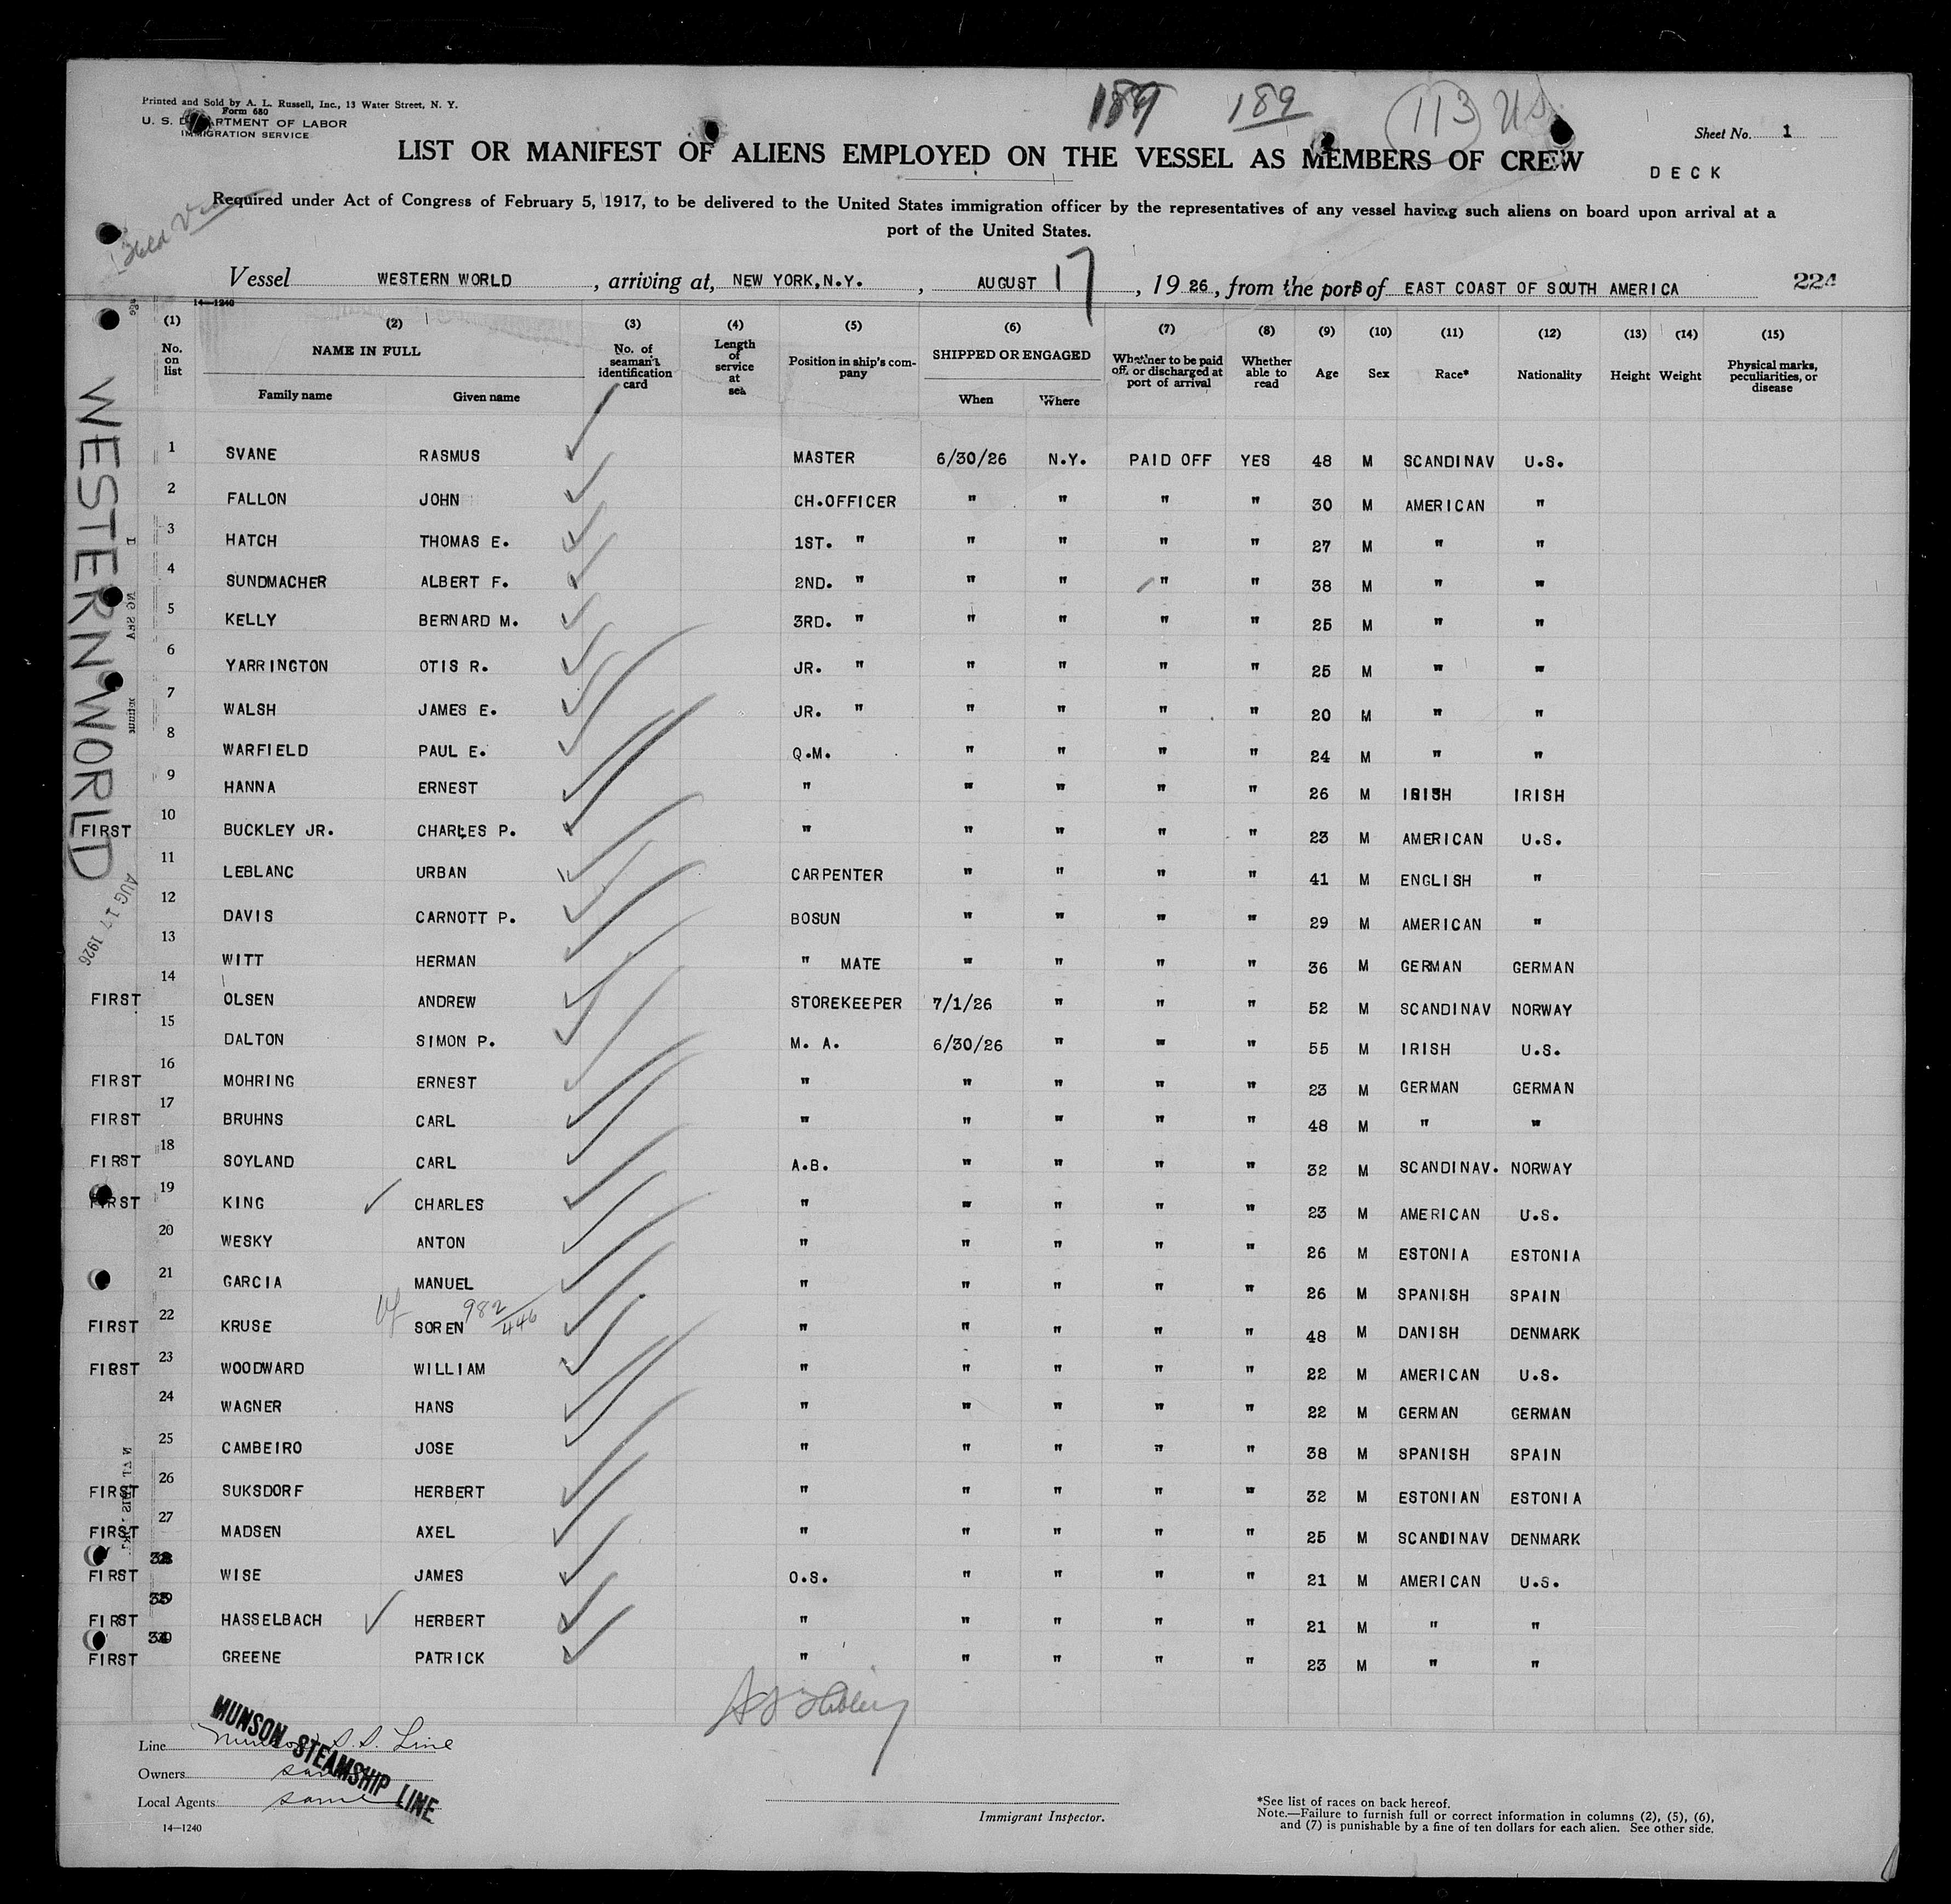 Printed and Sold by A. L. Russell, Inc., 13 Water Street, N. Y.
Form 680
U. S. DEPARTMENT OF LABOR
IMMIGRATION SERVICE
189 189 113 US
Sheet No. 1
LIST OR MANIFEST OF ALIENS EMPLOYED ON THE VESSEL AS MEMBERS OF CREW
DECK
Required under Act of Congress of February 5, 1917, to be delivered to the United States immigration officer by the representatives of any vessel having such aliens on board upon arrival at a
port of the United States.
Vessel WESTERN WORLD, arriving at, NEW YORK, N.Y., AUGUST 17, 1926, from the ports of EAST COAST OF SOUTH AMERICA
224
14—1240
(1) (2) (3) (4) (5) (6) (7) (8) (9) (10) (11) (12) (13) (14) (15)
No. on list
NAME IN FULL
Family name Given name
No. of seaman's identification card
Length of service at sea
Position in ship's company
SHIPPED OR ENGAGED
When Where
Whether to be paid off or discharged at port of arrival
Whether able to read
Age Sex Race* Nationality Height Weight
Physical marks, peculiarities, or disease
WESTERN WORLD
AUG 17 1926
1 SVANE RASMUS MASTER 6/30/26 N.Y. PAID OFF YES 48 M SCANDINAV U.S.
2 FALLON JOHN CH.OFFICER " " " " 30 M AMERICAN "
3 HATCH THOMAS E. 1ST. " " " " " 27 M " "
4 SUNDMACHER ALBERT F. 2ND. " " " " " 38 M " "
5 KELLY BERNARD M. 3RD. " " " " " 25 M " "
6 YARRINGTON OTIS R. JR. " " " " " 25 M " "
7 WALSH JAMES E. JR. " " " " " 20 M " "
8 WARFIELD PAUL E. Q.M. " " " " 24 M " "
9 HANNA ERNEST " " " " " 26 M IRISH IRISH
FIRST 10 BUCKLEY JR. CHARLES P. " " " " " 23 M AMERICAN U.S.
11 LEBLANC URBAN CARPENTER " " " " 41 M ENGLISH "
12 DAVIS CARNOTT P. BOSUN " " " " 29 M AMERICAN "
13 WITT HERMAN " MATE " " " " 36 M GERMAN GERMAN
FIRST 14 OLSEN ANDREW STOREKEEPER 7/1/26 " " " 52 M SCANDINAV NORWAY
15 DALTON SIMON P. M. A. 6/30/26 " " " 55 M IRISH U.S.
FIRST 16 MOHRING ERNEST " " " " " 23 M GERMAN GERMAN
FIRST 17 BRUHNS CARL " " " " " 48 M " "
FIRST 18 SOYLAND CARL A.B. " " " " 32 M SCANDINAV. NORWAY
FIRST 19 KING CHARLES " " " " " 23 M AMERICAN U.S.
20 WESKY ANTON " " " " " 26 M ESTONIA ESTONIA
21 GARCIA MANUEL " " " " " 26 M SPANISH SPAIN
982/446
FIRST 22 KRUSE SOREN " " " " " 48 M DANISH DENMARK
FIRST 23 WOODWARD WILLIAM " " " " " 22 M AMERICAN U.S.
24 WAGNER HANS " " " " " 22 M GERMAN GERMAN
25 CAMBEIRO JOSE " " " " " 38 M SPANISH SPAIN
FIRST 26 SUKSDORF HERBERT " " " " " 32 M ESTONIAN ESTONIA
FIRST 27 MADSEN AXEL " " " " " 25 M SCANDINAV DENMARK
FIRST WISE JAMES O.S. " " " " 21 M AMERICAN U.S.
FIRST HASSELBACH HERBERT " " " " " 21 M " "
FIRST GREENE PATRICK " " " " " 23 M " "
Line Munson S.S. Line
MUNSON STEAMSHIP LINE
Owners same
Local Agents same
14—1240
Immigrant Inspector.
*See list of races on back hereof.
Note.—Failure to furnish full or correct information in columns (2), (5), (6),
and (7) is punishable by a fine of ten dollars for each alien. See other side.